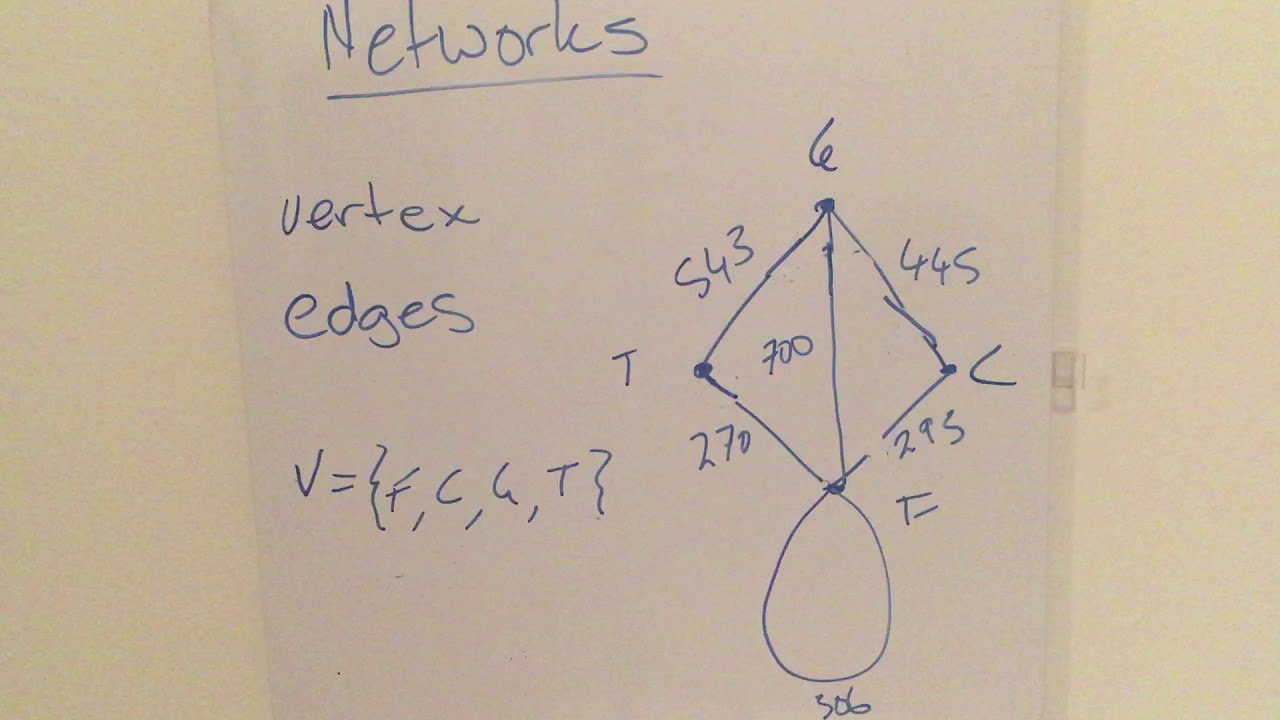 Networks
vertex
edges
V={F, C, G, T}
G
543
445
700
T
C
270
295
F
306